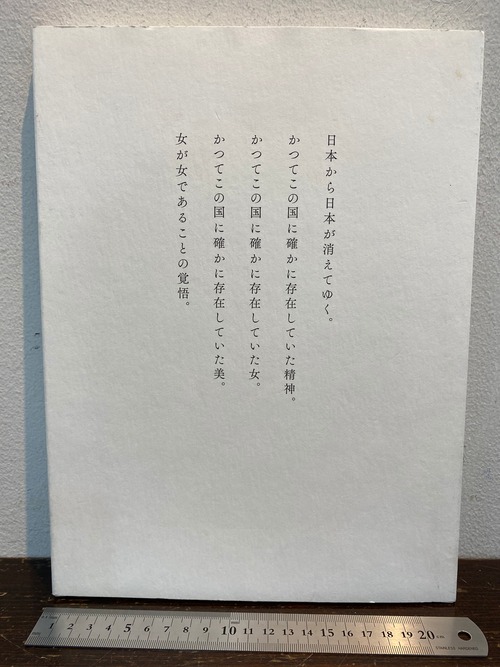 日本から日本が消えてゆく。
かつてこの国に確かに存在していた精神。
かつてこの国に確かに存在していた女。
かつてこの国に確かに存在していた美。
女が女であることの覚悟。
1 2 3 4 5 6 7 8 9 10 11 12 13 14 15 16 17 18 19 20